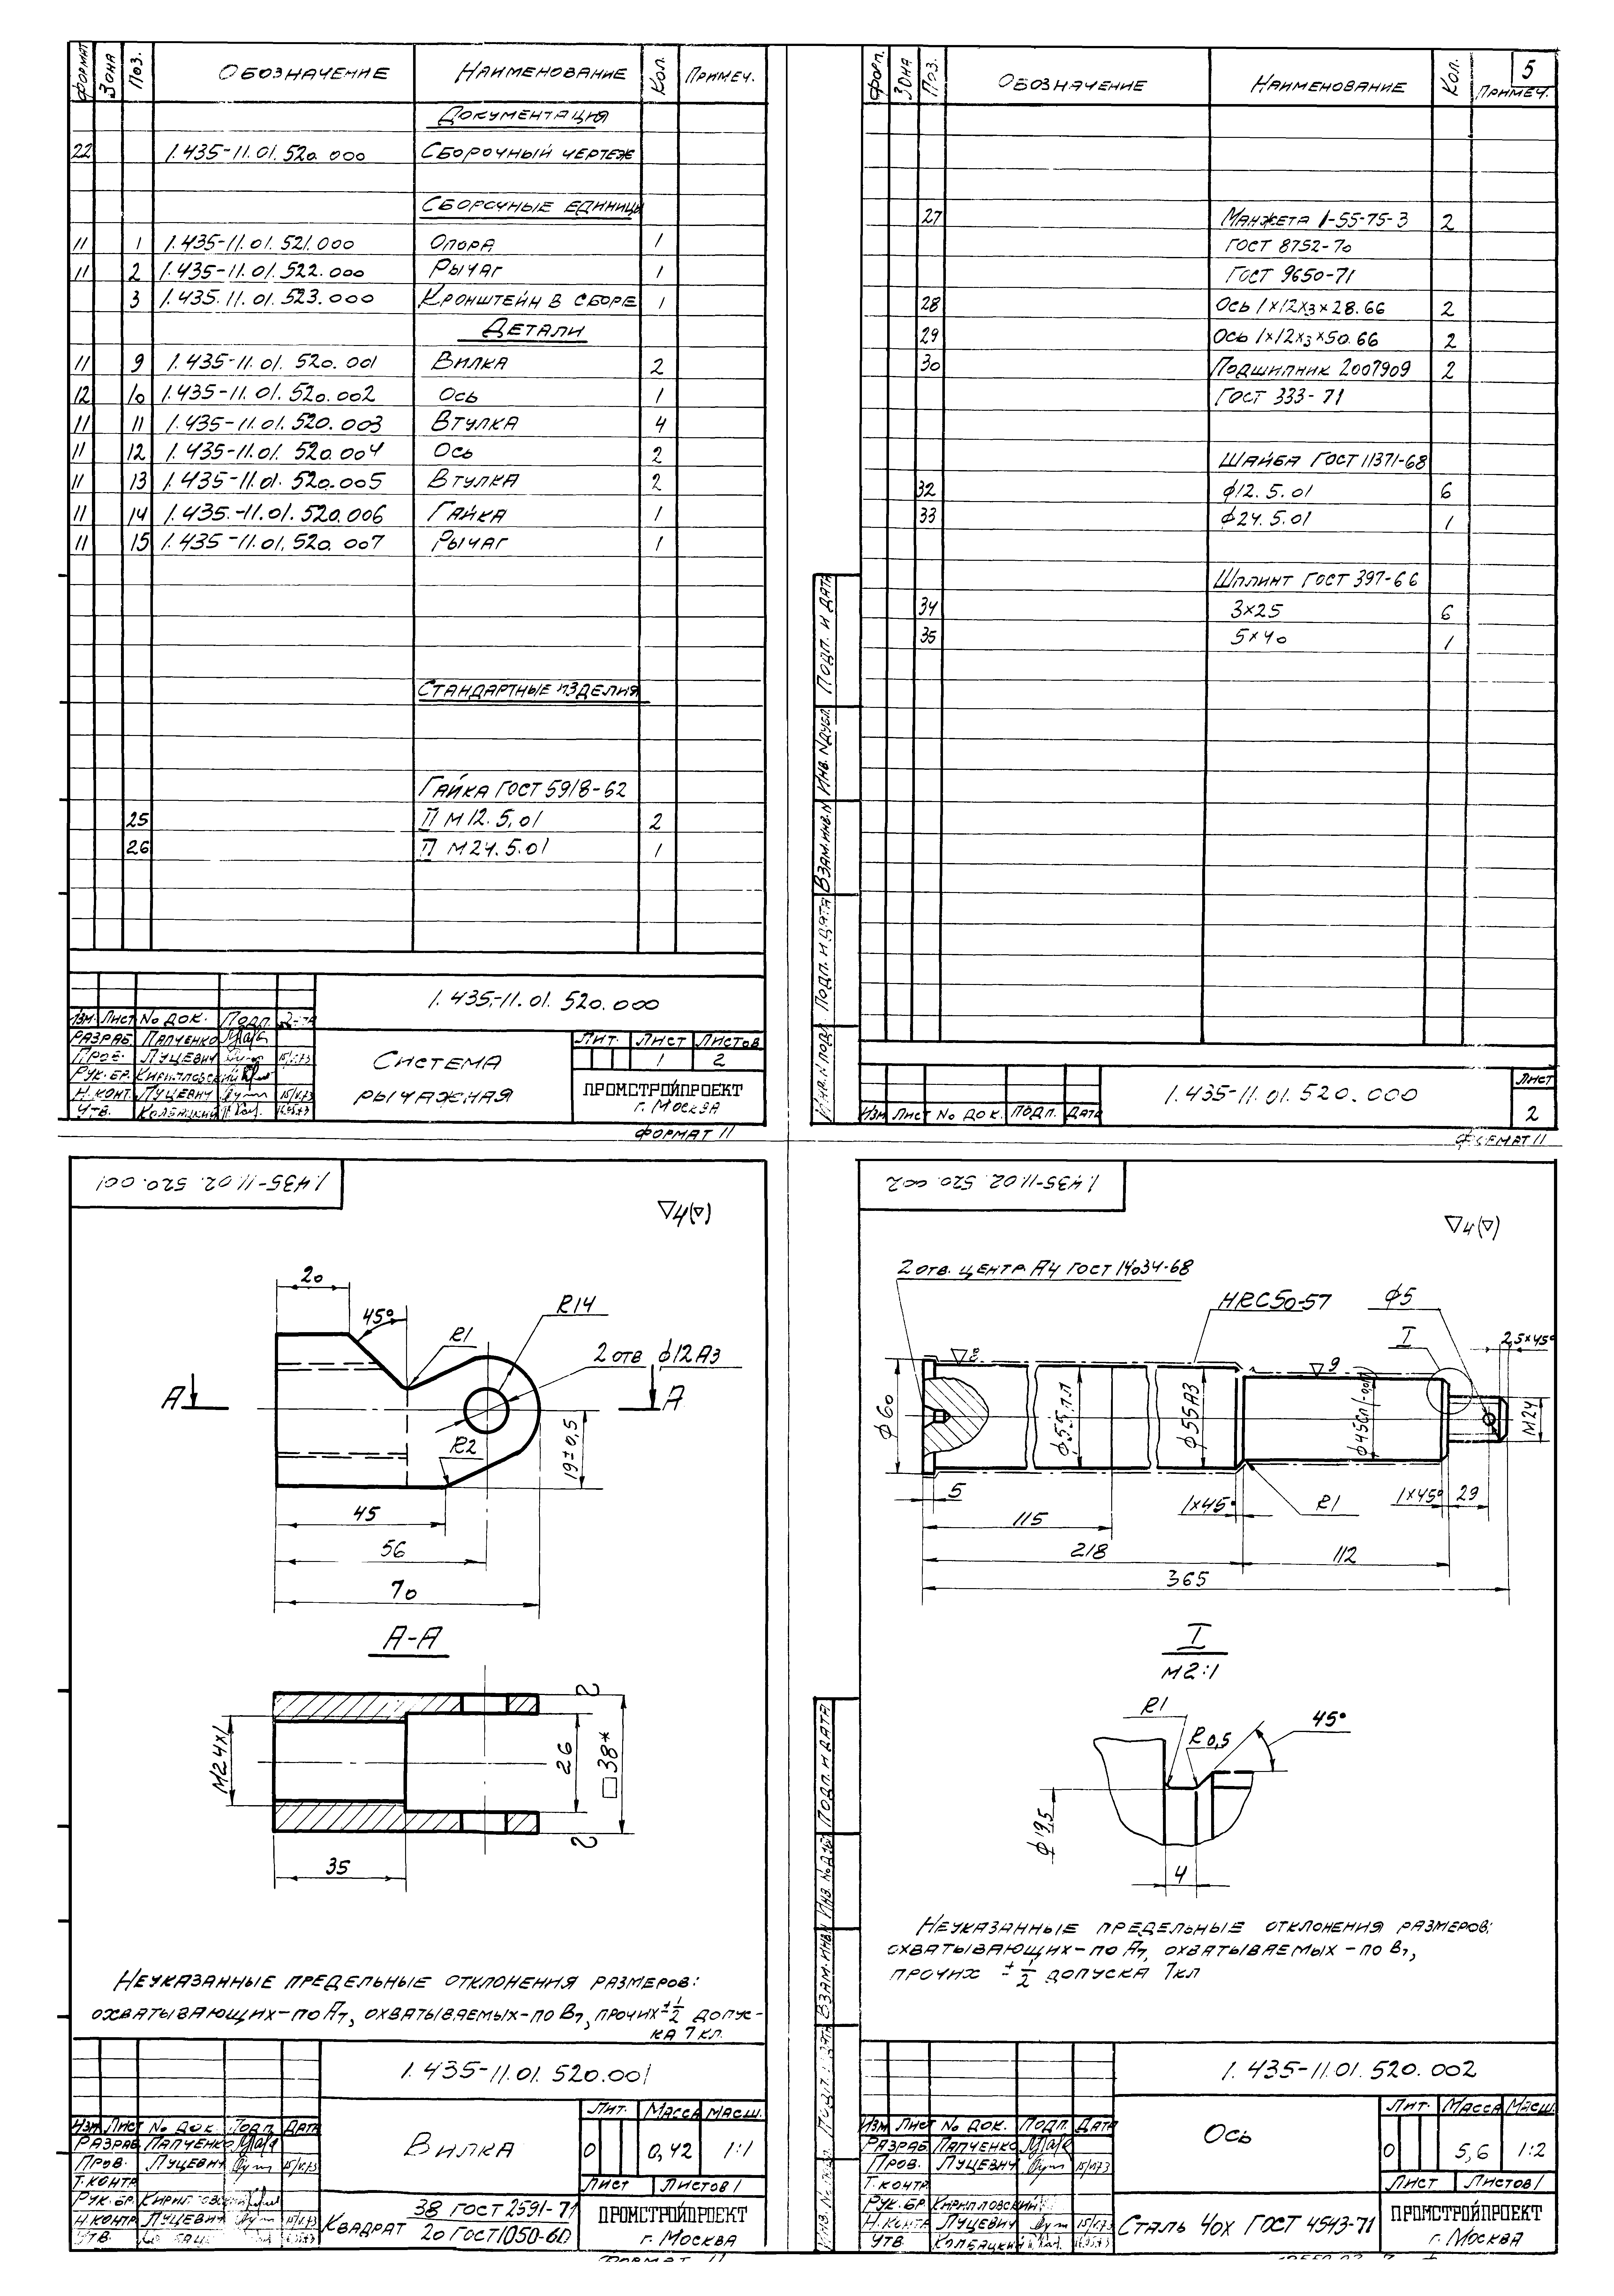 Формат Зона Поз. Обозначение Наименование Кол. Примеч.
Документация
22 1.435-11.01.520.000 Сборочный чертеж
Сборочные единицы
11 1 1.435-11.01.521.000 Опора 1
11 2 1.435-11.01.522.000 Рычаг 1
3 1.435.11.01.523.000 Кронштейн в сборе 1
Детали
11 9 1.435-11.01.520.001 Вилка 2
12 10 1.435-11.01.520.002 Ось 1
11 11 1.435-11.01.520.003 Втулка 4
11 12 1.435-11.01.520.004 Ось 2
11 13 1.435-11.01.520.005 Втулка 2
11 14 1.435.-11.01.520.006 Гайка 1
11 15 1.435-11.01.520.007 Рычаг 1
Стандартные изделия
Гайка ГОСТ 5918-62
25 П М12.5.01 2
26 П М24.5.01 1
1.435-11.01.520.000
Изм. Лист № док. Подп. Дата
Разраб. Папченко
Пров. Луцевич
Рук. бр. Кирилловский
Н. конт. Луцевич
Утв. Колбацкий
Система
рычажная
Лит. Лист Листов
1 2
ПРОМСТРОЙПРОЕКТ
г. Москва
Формат 11
5
Форм. Зона Поз. Обозначение Наименование Кол. Примеч.
27 Манжета 1-55-75-3 2
ГОСТ 8752-70
ГОСТ 9650-71
28 Ось 1х12х3х28.66 2
29 Ось 1х12х3х50.66 2
30 Подшипник 2007909 2
ГОСТ 333-71
Шайба ГОСТ 11371-68
32 ф12.5.01 6
33 ф24.5.01 1
Шплинт ГОСТ 397-66
34 3х25 6
35 5х40 1
Подп. и дата
Инв. № дубл.
Взам. инв. №
Подп. и дата
Инв. № подл.
Изм Лист № док. Подп. Дата
1.435-11.01.520.000
Лист
2
Формат 11
1.435-11.02.520.001
▽4(▽)
20
45°
R1
R14
2 отв ф12А3
А А
R2
19±0,5
45
56
70
А-А
М24х1
2
26
□38*
2
35
Неуказанные предельные отклонения размеров:
охватывающих-по А7, охватываемых-по В7, прочих ±1/2 допус-
ка 7 кл.
1.435-11.01.520.001
Изм Лист № док. Подп. Дата
Разраб Папченко
Пров. Луцевич
Т. контр
Рук. бр
Н. контр Луцевич
Утв.
Вилка
Лит. Масса Масш.
0 0,42 1:1
Лист Листов 1
Квадрат 38 ГОСТ 2591-71
20 ГОСТ 1050-60
ПРОМСТРОЙПРОЕКТ
г. Москва
1.435-11.02.520.002
▽4(▽)
2 отв. центр А4 ГОСТ 14034-68
HRC50-57
ф5
I
2,5х45°
▽8
▽9
ф60
ф55А3
М24
5
1х45°
R1
1х45°
29
115
218
112
365
I
М2:1
R1
R0,5
45°
ф19,5
4
Неуказанные предельные отклонения размеров:
охватывающих-по А7, охватываемых-по В7,
прочих ±1/2 допуска 7кл
Подп. и дата
Инв. № дубл
Взам. инв №
1.435-11.01.520.002
Изм Лист № док. Подп. Дата
Разраб Папченко
Пров. Луцевич
Т. контр
Рук. бр Кирилловский
Н. контр Луцевич
Утв Колбацкий
Ось
Лит. Масса Масш.
0 5,6 1:2
Лист Листов 1
Сталь 40х ГОСТ 4543-71
ПРОМСТРОЙПРОЕКТ
г. Москва